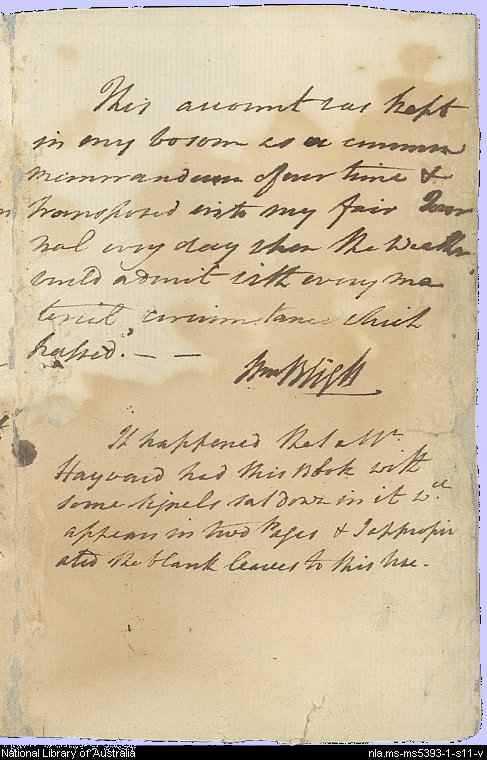 This account was kept
in my bosom as a common
memorandum of our time &
transposed into my fair Jour
nal every day when the Weather
would admit with every ma
terial circumstance which
passed. — —
Wm Bligh
It happened that a Mr.
Hayward had this Book with
some signals set down in it wch.
appears in two Pages & I appropri
ated the blank leaves to this use.
National Library of Australia
nla.ms-ms5393-1-s11-v